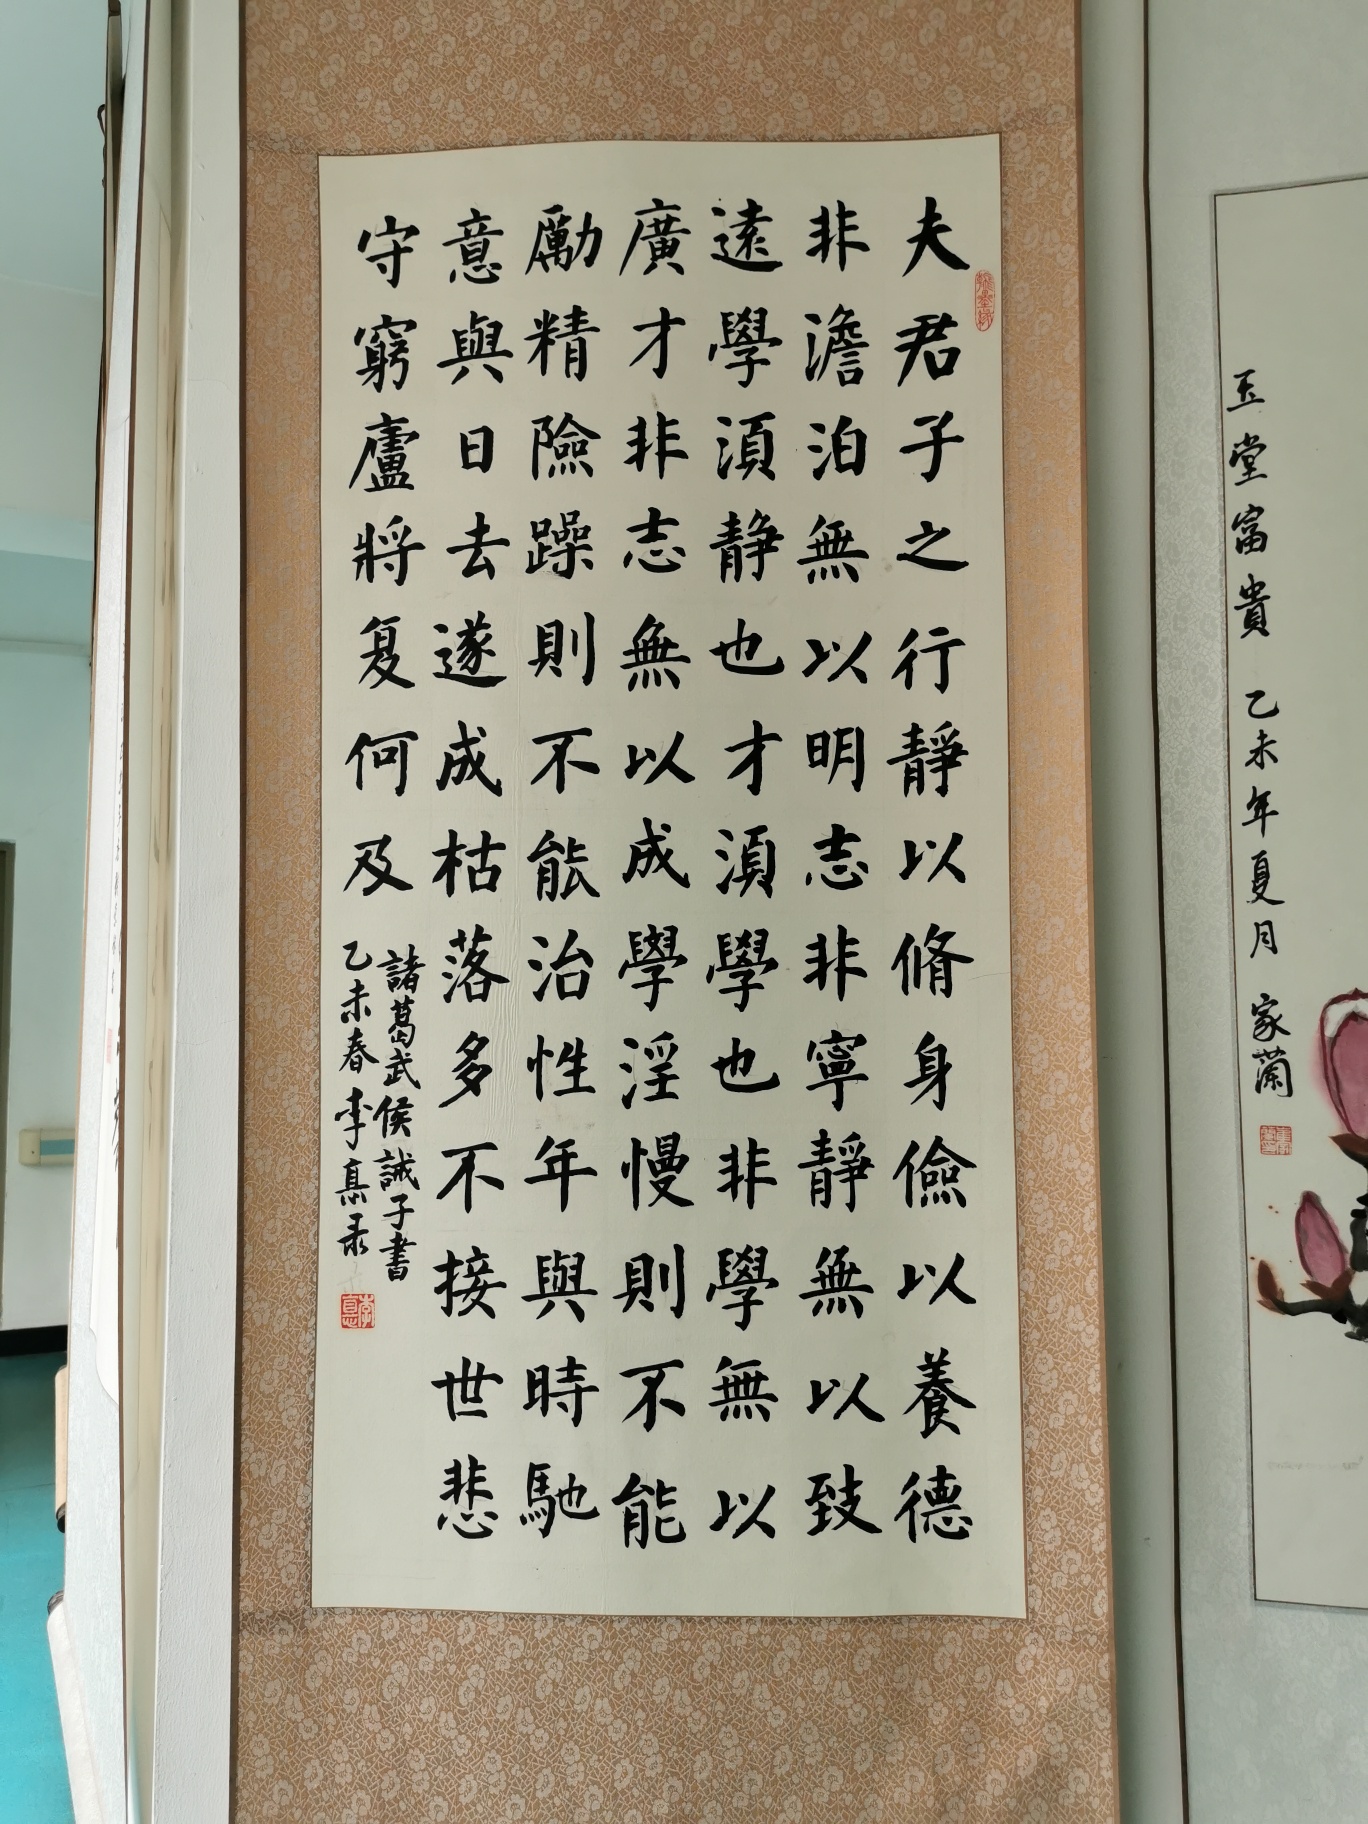 夫君子之行靜以脩身儉以養德
非澹泊無以明志非寧靜無以致
遠學湏静也才湏學也非學無以
廣才非志無以成學淫慢則不能
勵精險躁則不能治性年與時馳
意與日去遂成枯落多不接世悲
守窮廬將复何及
諸葛武侯誡子書
乙未春李惪录
玉堂富貴 乙未年夏月 家蘭